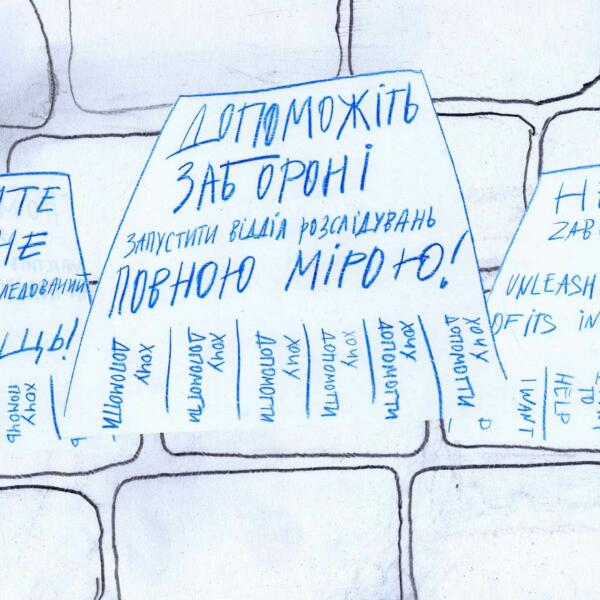 ДОПОМОЖІТЬ
ЗАБОРОНІ
ЗАПУСТИТИ ВІДДІЛ РОЗСЛІДУВАНЬ
ПОВНОЮ МІРОЮ!
ХОЧУ
ДОПОМОГТИ
ХОЧУ
ДОПОМОГТИ
ХОЧУ
ДОПОМОГТИ
ХОЧУ
ДОПОМОГТИ
ХОЧУ
ДОПОМОГТИ
ХОЧУ
ДОПОМОГТИ
ХОЧУ
ПОМОЧЬ
UNLEASH
OF ITS
I WANT
TO
HELP